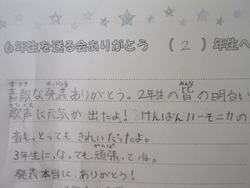 6年生を送る会ありがとう （2）年生へ
素敵な発表ありがとう。2年生の皆の明るい
歌声に元気が出たよ！けんばんハーモニカの
音も、とってもきれいだったよ。
3年生に、なっても頑張ってね。
発表本当に、ありがとう！